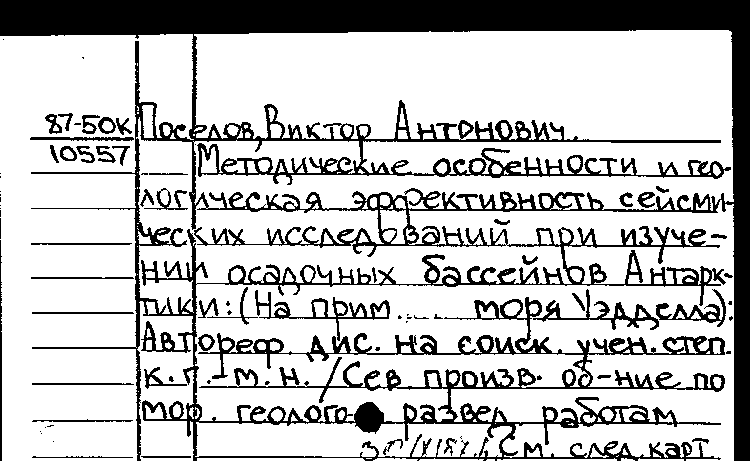 87-50К Поселов, Виктор Антонович.
10557 Методические особенности и гео-
логическая эффективность сейсми-
ческих исследований при изуче-
нии осадочных бассейнов Антарк-
тики: (На прим.... моря Уэдделла):
Автореф. дис. на соиск. учен. степ.
к.г.-м.н. / Сев. произв. об-ние по
мор. геолого развед. работам
См. след. карт